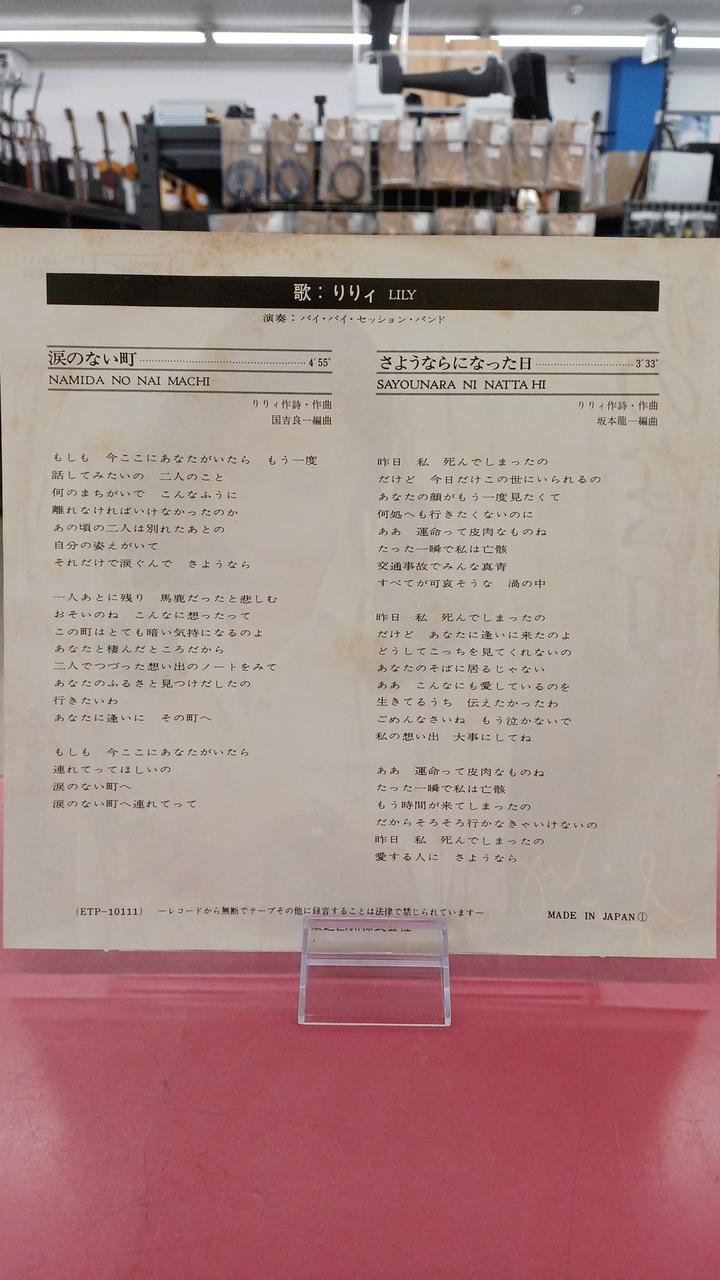 歌：りりィ LILY
演奏：バイ・バイ・セッション・バンド
涙のない町 4′55″
NAMIDA NO NAI MACHI
りりィ作詩・作曲
国吉良一編曲
もしも　今ここにあなたがいたら　もう一度
話してみたいの　二人のこと
何のまちがいで　こんなふうに
離れなければいけなかったのか
あの頃の二人は別れたあとの
自分の姿えがいて
それだけで涙ぐんで　さようなら
一人あとに残り　馬鹿だったと悲しむ
おそいのね　こんなに想ったって
この町はとても暗い気持になるのよ
あなたと棲んだところだから
二人でつづった想い出のノートをみて
あなたのふるさと見つけだしたの
行きたいわ
あなたに逢いに　その町へ
もしも　今ここにあなたがいたら
連れてってほしいの
涙のない町へ
涙のない町へ連れてって
さようならになった日 3′33″
SAYOUNARA NI NATTA HI
りりィ作詩・作曲
坂本龍一編曲
昨日　私　死んでしまったの
だけど　今日だけこの世にいられるの
あなたの顔がもう一度見たくて
何処へも行きたくないのに
ああ　運命って皮肉なものね
たった一瞬で私は亡骸
交通事故でみんな真青
すべてが可哀そうな　渦の中
昨日　私　死んでしまったの
だけど　あなたに逢いに来たのよ
どうしてこっちを見てくれないの
あなたのそばに居るじゃない
ああ　こんなにも愛しているのを
生きてるうち　伝えたかったわ
ごめんなさいね　もう泣かないで
私の想い出　大事にしてね
ああ　運命って皮肉なものね
たった一瞬で私は亡骸
もう時間が来てしまったの
だからそろそろ行かなきゃいけないの
昨日　私　死んでしまったの
愛する人に　さようなら
(ETP-10111) ―レコードから無断でテープその他に録音することは法律で禁じられています― MADE IN JAPAN①